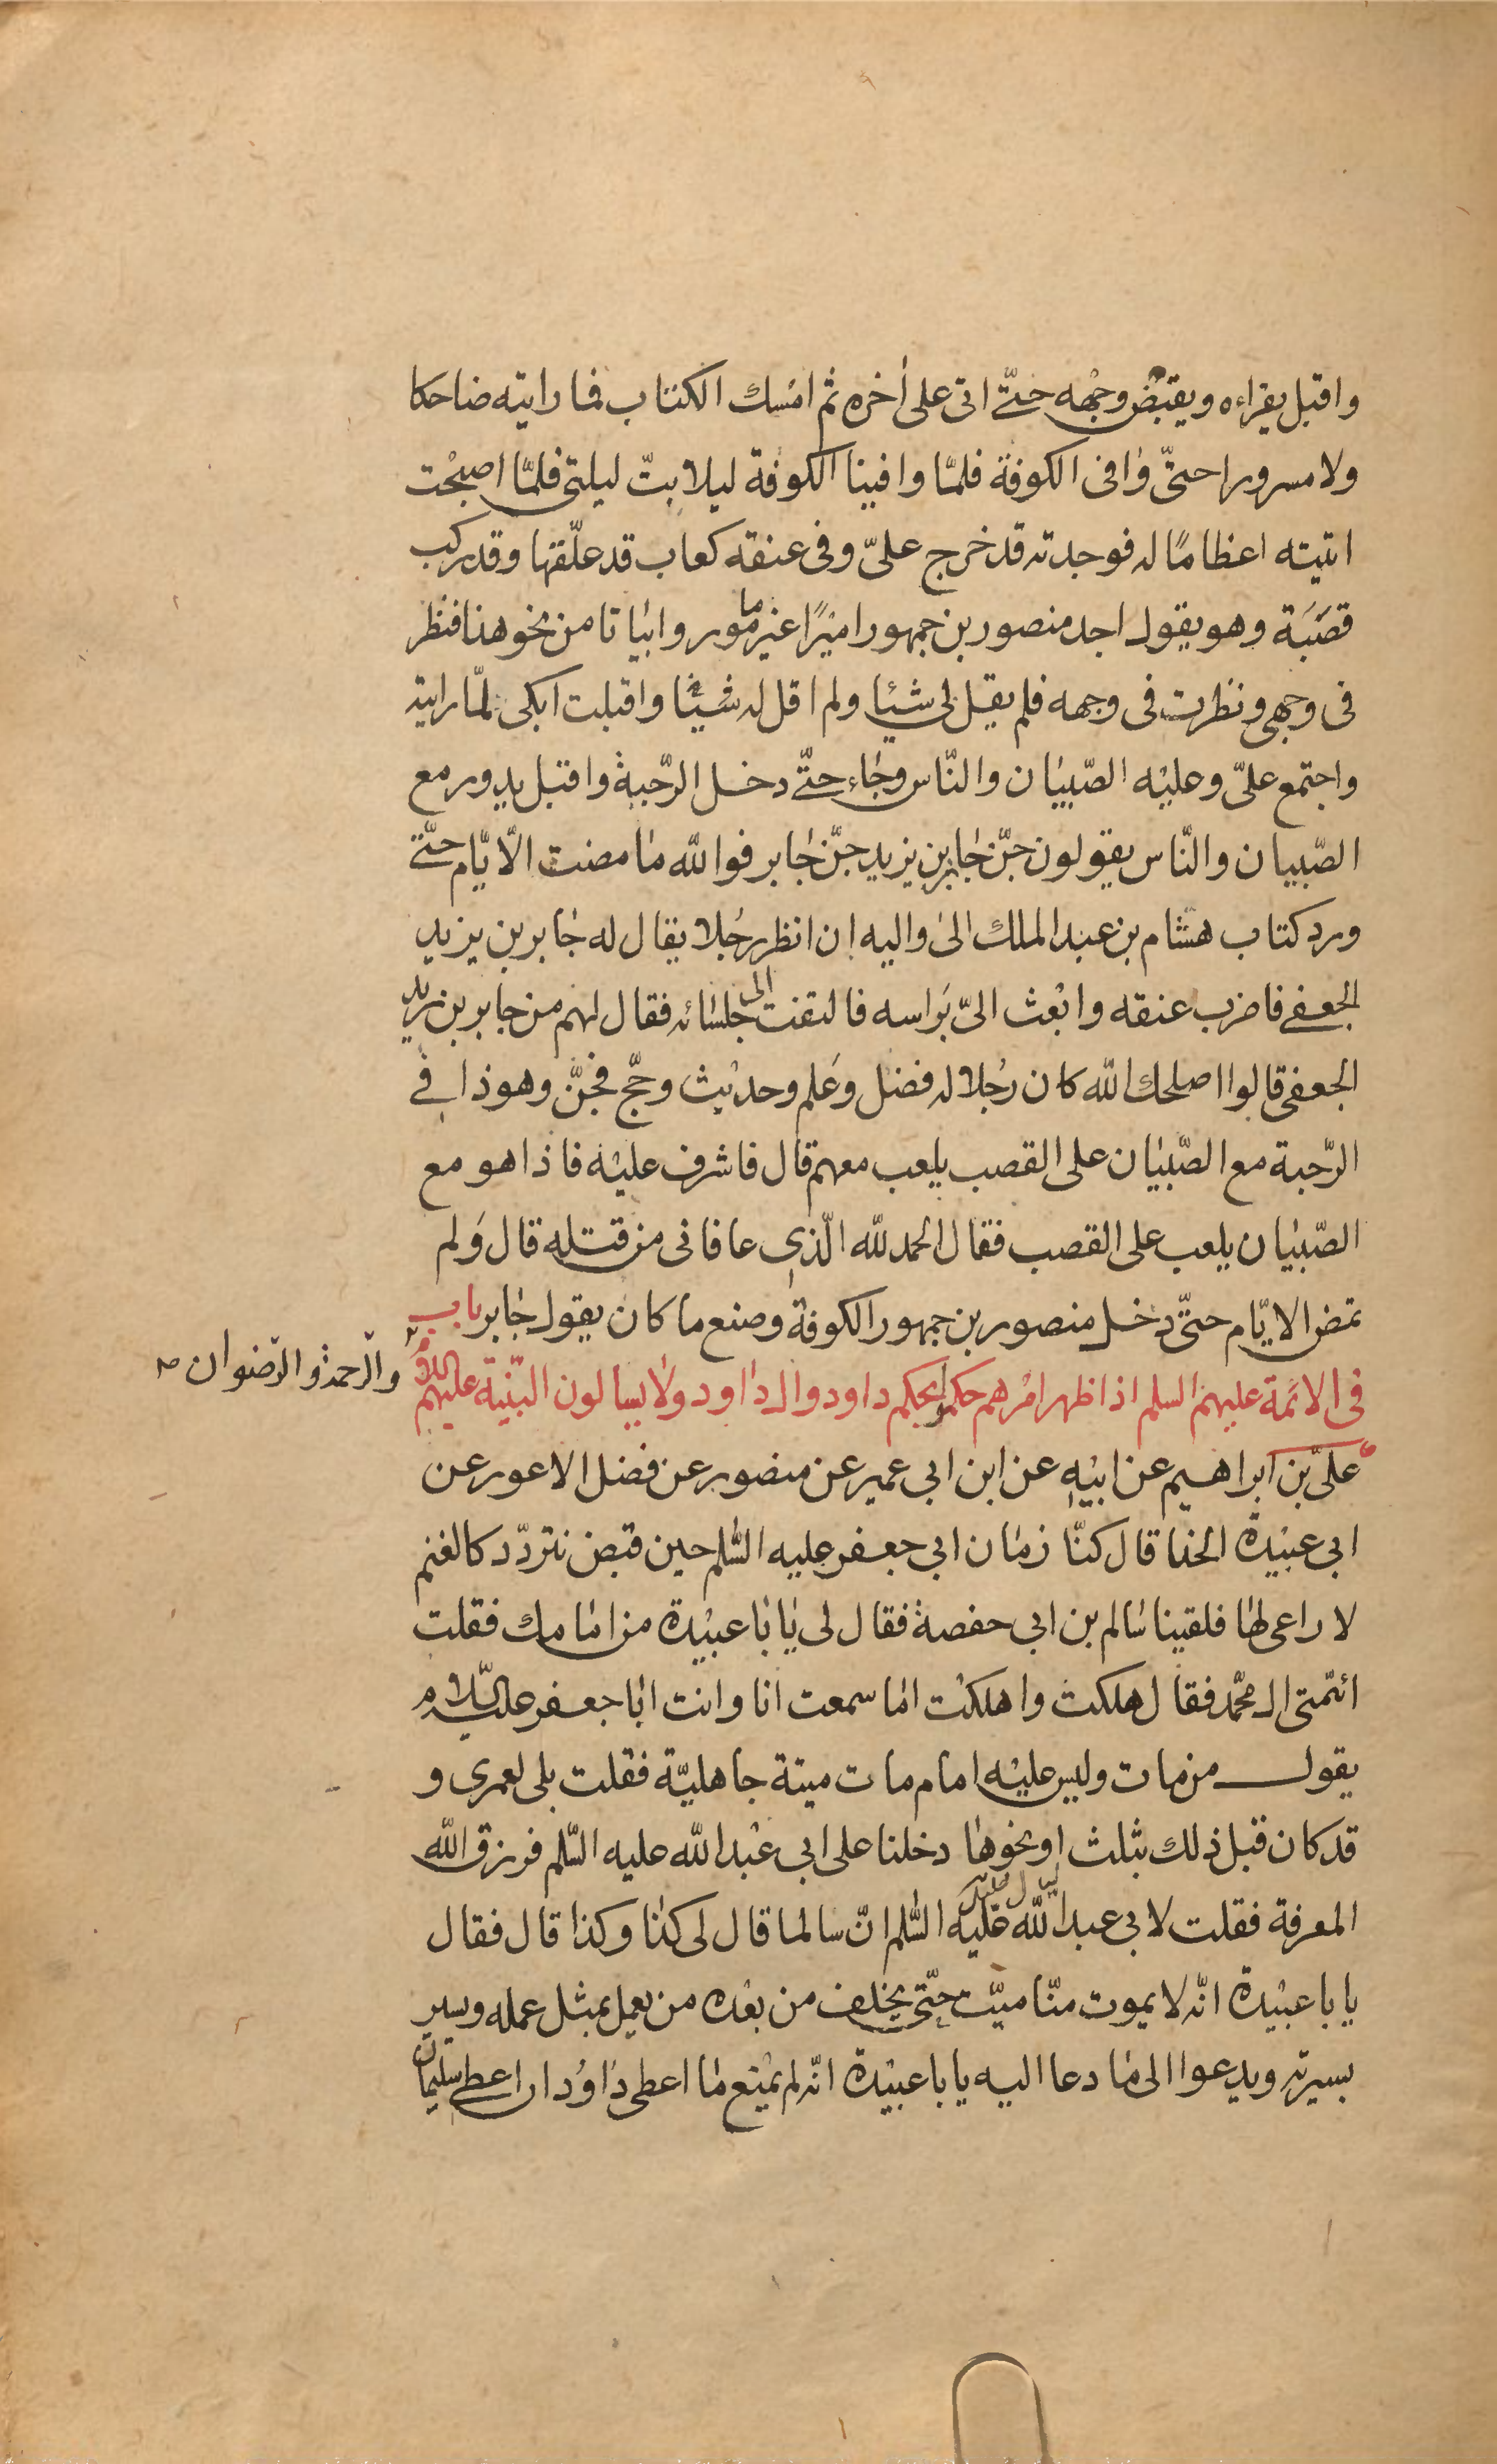 واقبل يقراءه ويقبض وجهه حتّى اتى على أخره ثم امسك الكتاب فما رايته ضاحكا
ولا مسرورا حتىّ وافى الكوفة فلمّا وافينا الكوفة ليلا بتّ ليلتى فلمّا اصبحت
اتيته اعظامًا له فوجدته قد خرج علىّ وفى عنقه كعاب قد علّقها وقد ركب
قصَبَة وهو يقول اجد منصور بن جمهور اميرًا غير مامور وابياتا من نحو هذا فنظر
فى وجهى ونظرت فى وجهه فلم يقل لى شيئا ولم اقل له شيئا واقبلت ابكى لمّا رايته
واجتمع علىّ وعليه الصّبيان والنّاس وجاء حتّى دخل الرّحبة واقبل يدور مع
الصّبيان والنّاس يقولون جنّ جابر بن يزيد جنّ جابر فوالله ما مضت الّا يّام حتّى
ورد كتاب هشام بن عبد الملك الى واليه ان انظر رجُلا يقال له جابر بن يزيد
الجعفى فاضرب عنقه وابعث الىّ بَراسه فالتفت الى جلسائه فقال لهم من جابر بن يزيد
الجعفى قالوا اصلحك الله كان رجُلا له فضل وعَلم وحديث وحجّ فجنّ وهو ذا فى
الرّحبة مع الصّبيان على القصب يلعب معهم قال فاشرف عليه فاذا هو مع
الصّبيان يلعب على القصب فقال الحمد لله الّذى عافانى من قتله قال وَلم
تمض الايّام حتّى دخل منصور بن جمهور الكوفة وصنع ما كان يقول جابر باب
فى الائمّة عليهم السلم اذا ظهر امرهم حكموا بحكم داود وال داود ولا يسالون البيّنة عليهم السلام
والرحمة والرّضوان صح
علىّ بن ابراهيم عن ابيه عن ابن ابى عمير عن منصور عن فضل الاعور عن
ابى عبيدة الحذا قال كنّا زمان ابى جعفر عليه السّلم حين قبض نتردّد كالغنم
لا راعى لها فلقينا سالم بن ابى حفصة فقال لى يا با عبيدة من امامك فقلت
ائمّتى ال محمّد فقال هلكت واهلكت اما سمعت انا وانت ابا جعفر عليه السّلام
يقول من مات وليس عليه امام مات ميتة جاهليّة فقلت بلى لعمرى و
قد كان قبل ذلك بثلث او نحوها دخلنا على ابى عبد الله عليه السّلم فرزق الله
المعرفة فقلت لابى عبد الله عليه السّلم انّ سالما قال لى كذا وكذا قال فقال
يا با عبيدة انّه لا يموت منّا ميّت حتّى يخلف من بعده من يعمل بمثل عمله ويسير
بسيرته ويدعوا الى ما دعا اليه يا با عبيدة انّه لم يمنع ما اعطى داوُد ان اعطى سليمان